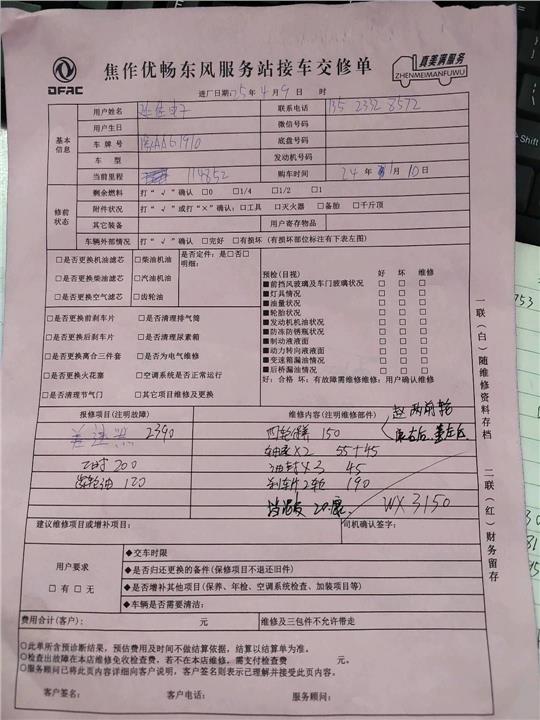 DFAC
焦作优畅东风服务站接车交修单
真美满服务
ZHENMEIMANFUWU
进厂日期: 25 年 4 月 9 日 时
基本信息
用户姓名
联系电话 135 2332 8572
用户生日
微信号码
车牌号
底盘号码
车型
发动机号码
当前里程 114852
购车时间 24 年 1 月 10 日
修前状态
剩余燃料 打“√”确认 □0 □1/4 □1/2 □1
附件状况 打“√”或打“×”确认:□工具 □灭火器 □备胎 □千斤顶
其它装备
用户寄存物品
车辆外部情况 打“√”确认 □完好 □有损坏(有损坏部位标注有下表左图)
□是否更换机油滤芯 □柴油机油
□是否更换柴油滤芯 □汽油机油
□是否更换空气滤芯 □齿轮油
是否定件:是□否□
明细:
□是否更换前刹车片 □是否清理排气筒
□是否更换后刹车片 □是否清理尿素箱
□是否更换离合三件套 □是否为电气维修
□是否更换火花塞 □空调系统是否正常运行
□是否清理节气门 □其它项目维修及更换
预检(目视) 好 坏 维修
■前挡风玻璃及车门玻璃状况 □ □ □
■灯具情况 □ □ □
■油量状况 □ □ □
■轮胎状况 □ □ □
■发动机机油状况 □ □ □
■防冻防锈瓶状况 □ □ □
■制动液液面 □ □ □
■动力转向液液面 □ □ □
■变速箱漏油情况 □ □ □
■后桥漏油情况 □ □ □
好:合格 坏:有故障需维修维修:用户确认维修
报修项目(注明故障)
维修内容(注明维修部件)
差速器 2390
四轮保养 150
轴承×2 55+45
工时 200
油封×3 45
齿轮油 120
刹车片2轮 190
WX 3150
建议维修项目或增补项目:
司机确认签字:
用户要求
□有 □无
◆交车时限
◆是否归还更换的备件(保修项目不退还旧件)
◆是否增补其他项目(保养、年检、空调系统检查、加装项目等)
◆车辆是否需要清洁:
费用合计(客户): 元
维修及三包件不允许带走
○此单所含预诊断结果,预估费用及时间不做结算依据,结算以结算单为准。
○检查出故障在本店维修免收检查费,若不在本店维修,需支付检查费 元。
○服务顾问已将此页内容详细向客户说明,客户签名则表示已理解并接受此页内容。
客户签名: 客户电话: 服务顾问:
一联(白)随维修资料存档
二联(红)财务留存
Shift